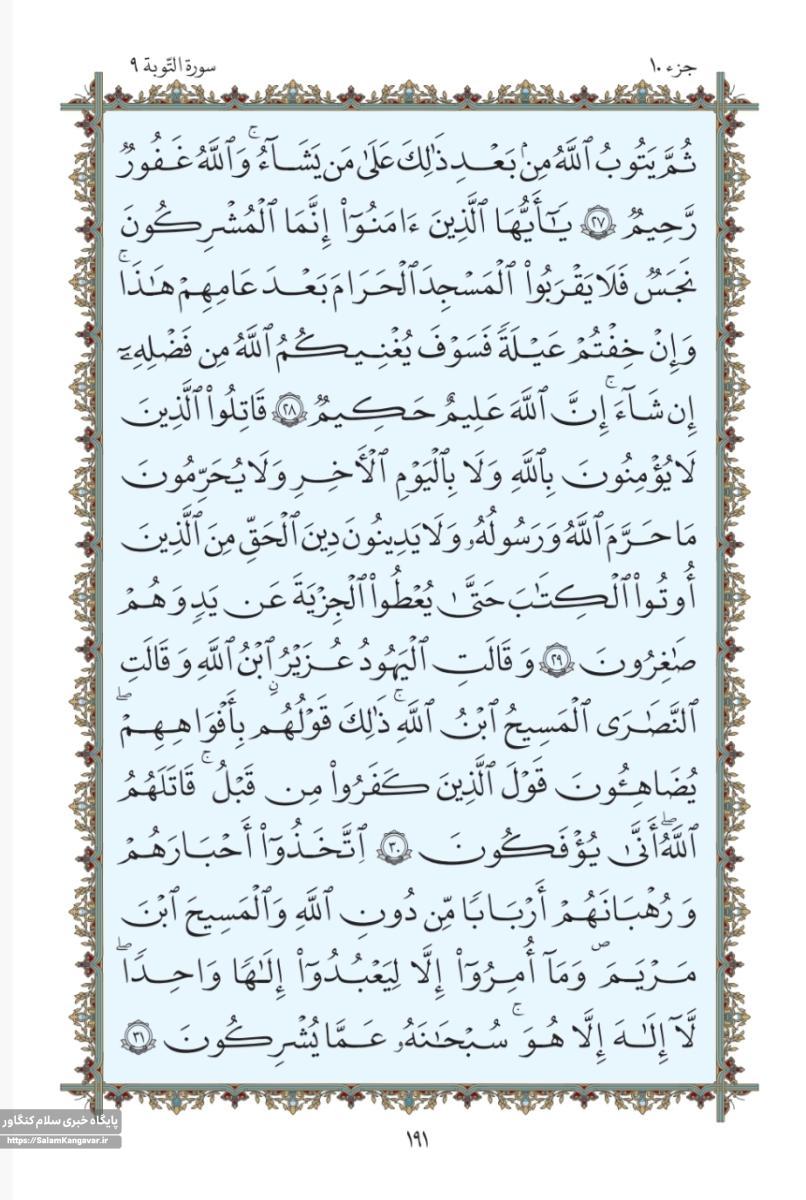 جزء ١٠
سورة التّوبة ٩
ثُمَّ يَتُوبُ ٱللَّهُ مِنۢ بَعۡدِ ذَٰلِكَ عَلَىٰ مَن يَشَآءُۗ وَٱللَّهُ غَفُورٞ
رَّحِيمٞ ٢٧ يَـٰٓأَيُّهَا ٱلَّذِينَ ءَامَنُوٓاْ إِنَّمَا ٱلۡمُشۡرِكُونَ
نَجَسٞ فَلَا يَقۡرَبُواْ ٱلۡمَسۡجِدَ ٱلۡحَرَامَ بَعۡدَ عَامِهِمۡ هَٰذَاۚ
وَإِنۡ خِفۡتُمۡ عَيۡلَةٗ فَسَوۡفَ يُغۡنِيكُمُ ٱللَّهُ مِن فَضۡلِهِۦٓ
إِن شَآءَۚ إِنَّ ٱللَّهَ عَلِيمٌ حَكِيمٞ ٢٨ قَٰتِلُواْ ٱلَّذِينَ
لَا يُؤۡمِنُونَ بِٱللَّهِ وَلَا بِٱلۡيَوۡمِ ٱلۡأٓخِرِ وَلَا يُحَرِّمُونَ
مَا حَرَّمَ ٱللَّهُ وَرَسُولُهُۥ وَلَا يَدِينُونَ دِينَ ٱلۡحَقِّ مِنَ ٱلَّذِينَ
أُوتُواْ ٱلۡكِتَٰبَ حَتَّىٰ يُعۡطُواْ ٱلۡجِزۡيَةَ عَن يَدٖ وَهُمۡ
صَٰغِرُونَ ٢٩ وَقَالَتِ ٱلۡيَهُودُ عُزَيۡرٌ ٱبۡنُ ٱللَّهِ وَقَالَتِ
ٱلنَّصَٰرَى ٱلۡمَسِيحُ ٱبۡنُ ٱللَّهِۖ ذَٰلِكَ قَوۡلُهُم بِأَفۡوَٰهِهِمۡۖ
يُضَٰهِـُٔونَ قَوۡلَ ٱلَّذِينَ كَفَرُواْ مِن قَبۡلُۚ قَٰتَلَهُمُ
ٱللَّهُۖ أَنَّىٰ يُؤۡفَكُونَ ٣٠ ٱتَّخَذُوٓاْ أَحۡبَارَهُمۡ
وَرُهۡبَٰنَهُمۡ أَرۡبَابٗا مِّن دُونِ ٱللَّهِ وَٱلۡمَسِيحَ ٱبۡنَ
مَرۡيَمَ وَمَآ أُمِرُوٓاْ إِلَّا لِيَعۡبُدُوٓاْ إِلَٰهٗا وَٰحِدٗاۖ
لَّآ إِلَٰهَ إِلَّا هُوَۚ سُبۡحَٰنَهُۥ عَمَّا يُشۡرِكُونَ ٣١
١٩١
پایگاه خبری سلام کنگاور
https://SalamKangavar.ir